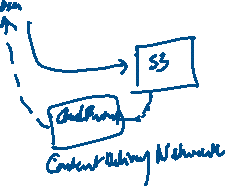 S3
CloudFront
Content Delivery Network